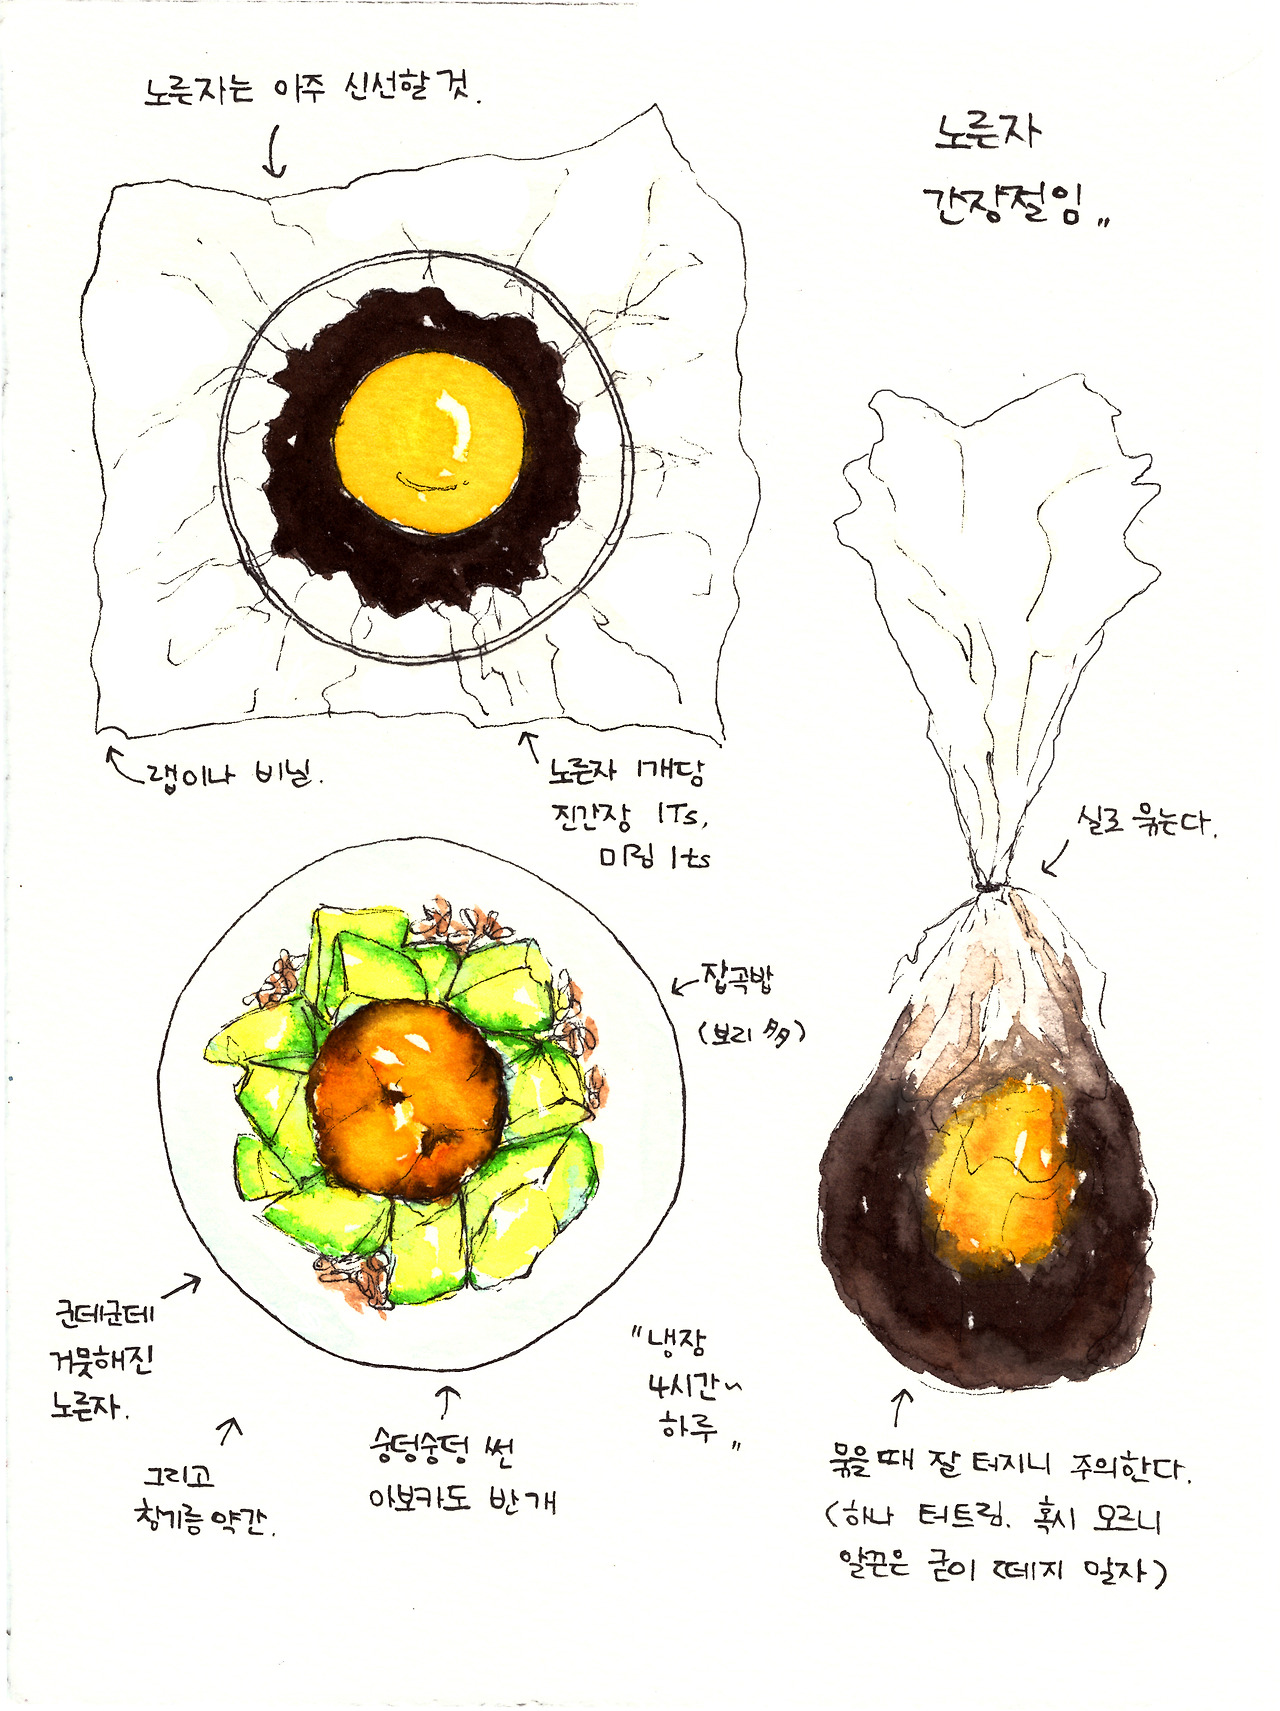 노른자
간장절임〃
노른자는 아주 신선할 것.
랩이나 비닐.
노른자 1개당
진간장 1Ts,
미림 1ts
실로 묶는다.
잡곡밥
(보리 多)
군데군데
거뭇해진
노른자.
그리고
참기름 약간.
숭덩숭덩 썬
아보카도 반개
〃냉장
4시간~
하루〃
묶을때 잘 터지니 주의한다.
(하나 터트림. 혹시 모르니
알끈은 굳이 떼지 말자)